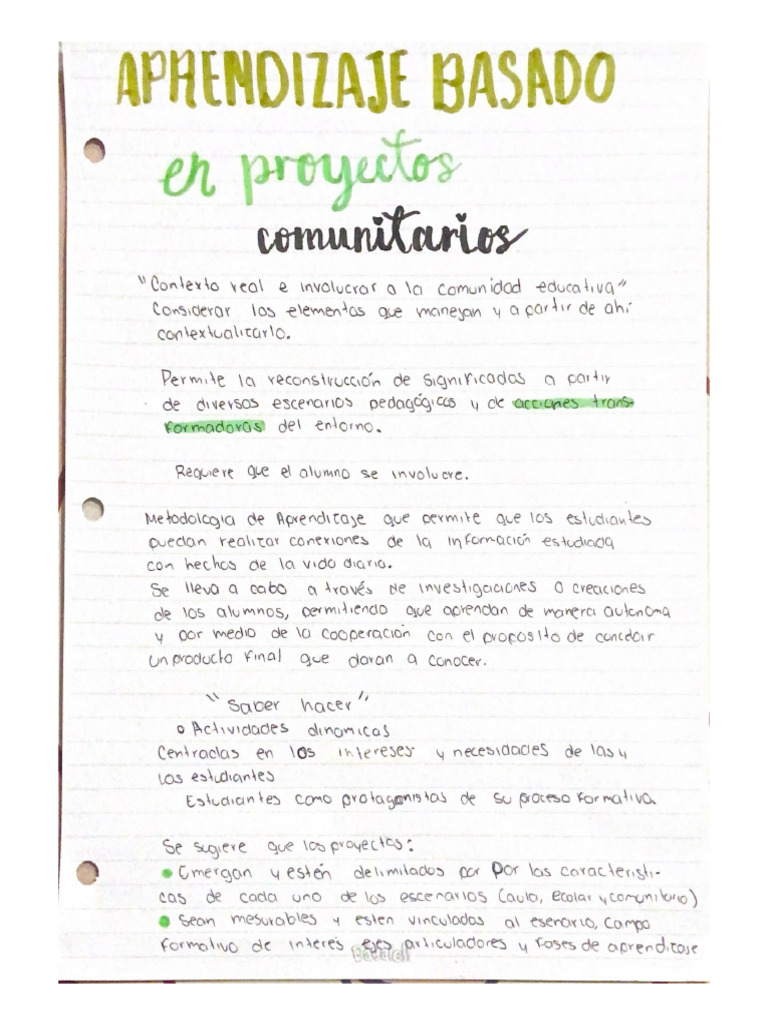 APRENDIZAJE BASADO
en proyectos
comunitarios
"Contexto real e involucrar a la comunidad educativa"
Considerar los elementos que manejan y a partir de ahí
contextualizarlo.
Permite la reconstrucción de significados a partir
de diversos escenarios pedagógicos y de acciones trans-
formadoras del entorno.
Requiere que el alumno se involucre.
Metodología de Aprendizaje que permite que los estudiantes
puedan realizar conexiones de la información estudiada
con hechos de la vida diaria.
Se lleva a cabo a través de investigaciones o creaciones
de los alumnos, permitiendo que aprendan de manera autonoma
y por medio de la cooperación con el proposito de concluir
un producto final que daran a conocer.
"Saber hacer"
o Actividades dinamicas
Centradas en los intereses y necesidades de las y
los estudiantes
Estudiantes como protagonistas de su proceso formativo.
Se sugiere que los proyectos:
• Emergan y estén delimitados por Por las caracteristi-
cas de cada uno de los escenarios (aula, ecolar y comunitario)
• Sean mesurables y esten vinculados al esenario, campo
formativo de interés ejes articuladores y fases de aprendizaje